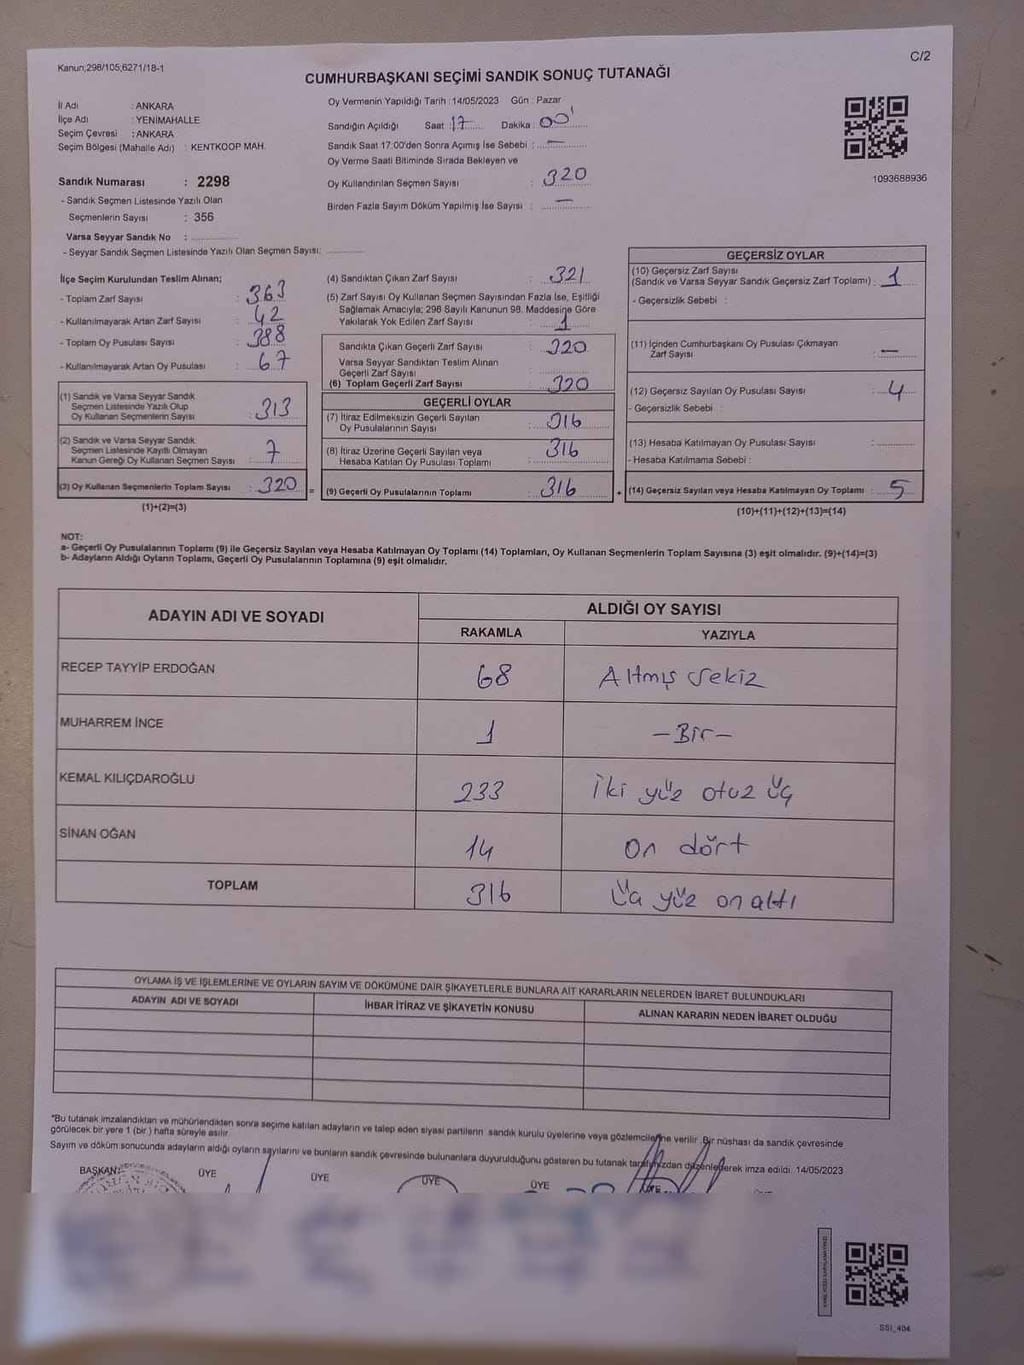 Kanun;298/105,6271/18-1
C/2
CUMHURBAŞKANI SEÇİMİ SANDIK SONUÇ TUTANAĞI
İl Adı : ANKARA
İlçe Adı : YENİMAHALLE
Seçim Çevresi : ANKARA
Seçim Bölgesi (Mahalle Adı) : KENTKOOP MAH.
Sandık Numarası : 2298
- Sandık Seçmen Listesinde Yazılı Olan
Seçmenlerin Sayısı : 356
Varsa Seyyar Sandık No :
- Seyyar Sandık Seçmen Listesinde Yazılı Olan Seçmen Sayısı:
Oy Vermenin Yapıldığı Tarih : 14/05/2023 Gün : Pazar
Sandığın Açıldığı Saat : 17 Dakika : 00
Sandık Saat 17:00'den Sonra Açımış İse Sebebi : —
Oy Verme Saati Bitiminde Sırada Bekleyen ve
Oy Kullandırılan Seçmen Sayısı : 320
Birden Fazla Sayım Döküm Yapılmış İse Sayısı : —
1093688936
İlçe Seçim Kurulundan Teslim Alınan;
- Toplam Zarf Sayısı : 363
- Kullanılmayarak Artan Zarf Sayısı : 42
- Toplam Oy Pusulası Sayısı : 388
- Kullanılmayarak Artan Oy Pusulası : 67
(1) Sandık ve Varsa Seyyar Sandık
Seçmen Listesinde Yazılı Olup
Oy Kullanan Seçmenlerin Sayısı : 313
(2) Sandık ve Varsa Seyyar Sandık
Seçmen Listesinde Kayıtlı Olmayan
Kanun Gereği Oy Kullanan Seçmen Sayısı : 7
(3) Oy Kullanan Seçmenlerin Toplam Sayısı : 320 =
(1)+(2)=(3)
(4) Sandıktan Çıkan Zarf Sayısı : 321
(5) Zarf Sayısı Oy Kullanan Seçmen Sayısından Fazla İse, Eşitliği
Sağlamak Amacıyla; 298 Sayılı Kanunun 98. Maddesine Göre
Yakılarak Yok Edilen Zarf Sayısı : 1
Sandıkta Çıkan Geçerli Zarf Sayısı : 320
Varsa Seyyar Sandıktan Teslim Alınan
Geçerli Zarf Sayısı :
(6) Toplam Geçerli Zarf Sayısı : 320
GEÇERLİ OYLAR
(7) İtiraz Edilmeksizin Geçerli Sayılan
Oy Pusulalarının Sayısı : 316
(8) İtiraz Üzerine Geçerli Sayılan veya
Hesaba Katılan Oy Pusulası Toplamı : 316
(9) Geçerli Oy Pusulalarının Toplamı : 316 +
GEÇERSİZ OYLAR
(10) Geçersiz Zarf Sayısı
(Sandık ve Varsa Seyyar Sandık Geçersiz Zarf Toplamı) : 1
- Geçersizlik Sebebi :
(11) İçinden Cumhurbaşkanı Oy Pusulası Çıkmayan
Zarf Sayısı : —
(12) Geçersiz Sayılan Oy Pusulası Sayısı : 4
- Geçersizlik Sebebi :
(13) Hesaba Katılmayan Oy Pusulası Sayısı :
- Hesaba Katılmama Sebebi :
(14) Geçersiz Sayılan veya Hesaba Katılmayan Oy Toplamı : 5
(10)+(11)+(12)+(13)=(14)
NOT:
a- Geçerli Oy Pusulalarının Toplamı (9) ile Geçersiz Sayılan veya Hesaba Katılmayan Oy Toplamı (14) Toplamları, Oy Kullanan Seçmenlerin Toplam Sayısına (3) eşit olmalıdır. (9)+(14)=(3)
b- Adayların Aldığı Oyların Toplamı, Geçerli Oy Pusulalarının Toplamına (9) eşit olmalıdır.
ADAYIN ADI VE SOYADI
ALDIĞI OY SAYISI
RAKAMLA YAZIYLA
RECEP TAYYİP ERDOĞAN 68 Altmış Sekiz
MUHARREM İNCE 1 -Bir-
KEMAL KILIÇDAROĞLU 233 İki yüz otuz üç
SİNAN OĞAN 14 On dört
TOPLAM 316 Üç yüz on altı
OYLAMA İŞ VE İŞLEMLERİNE VE OYLARIN SAYIM VE DÖKÜMÜNE DAİR ŞİKAYETLERLE BUNLARA AİT KARARLARIN NELERDEN İBARET BULUNDUKLARI
ADAYIN ADI VE SOYADI İHBAR İTİRAZ VE ŞİKAYETİN KONUSU ALINAN KARARIN NEDEN İBARET OLDUĞU
*Bu tutanak imzalandıktan ve mühürlendikten sonra seçime katılan adayların ve talep eden siyasi partilerin sandık kurulu üyelerine veya gözlemcilerine verilir. Bir nüshası da sandık çevresinde
görülecek bir yere 1 (bir) hafta süreyle asılır.
Sayım ve döküm sonucunda adayların aldığı oyların sayılarını ve bunların sandık çevresinde bulunanlara duyurulduğunu gösteren bu tutanak tarafımızdan düzenlenerek imza edildi. 14/05/2023
BAŞKAN ÜYE ÜYE ÜYE ÜYE ÜYE
SSI_404